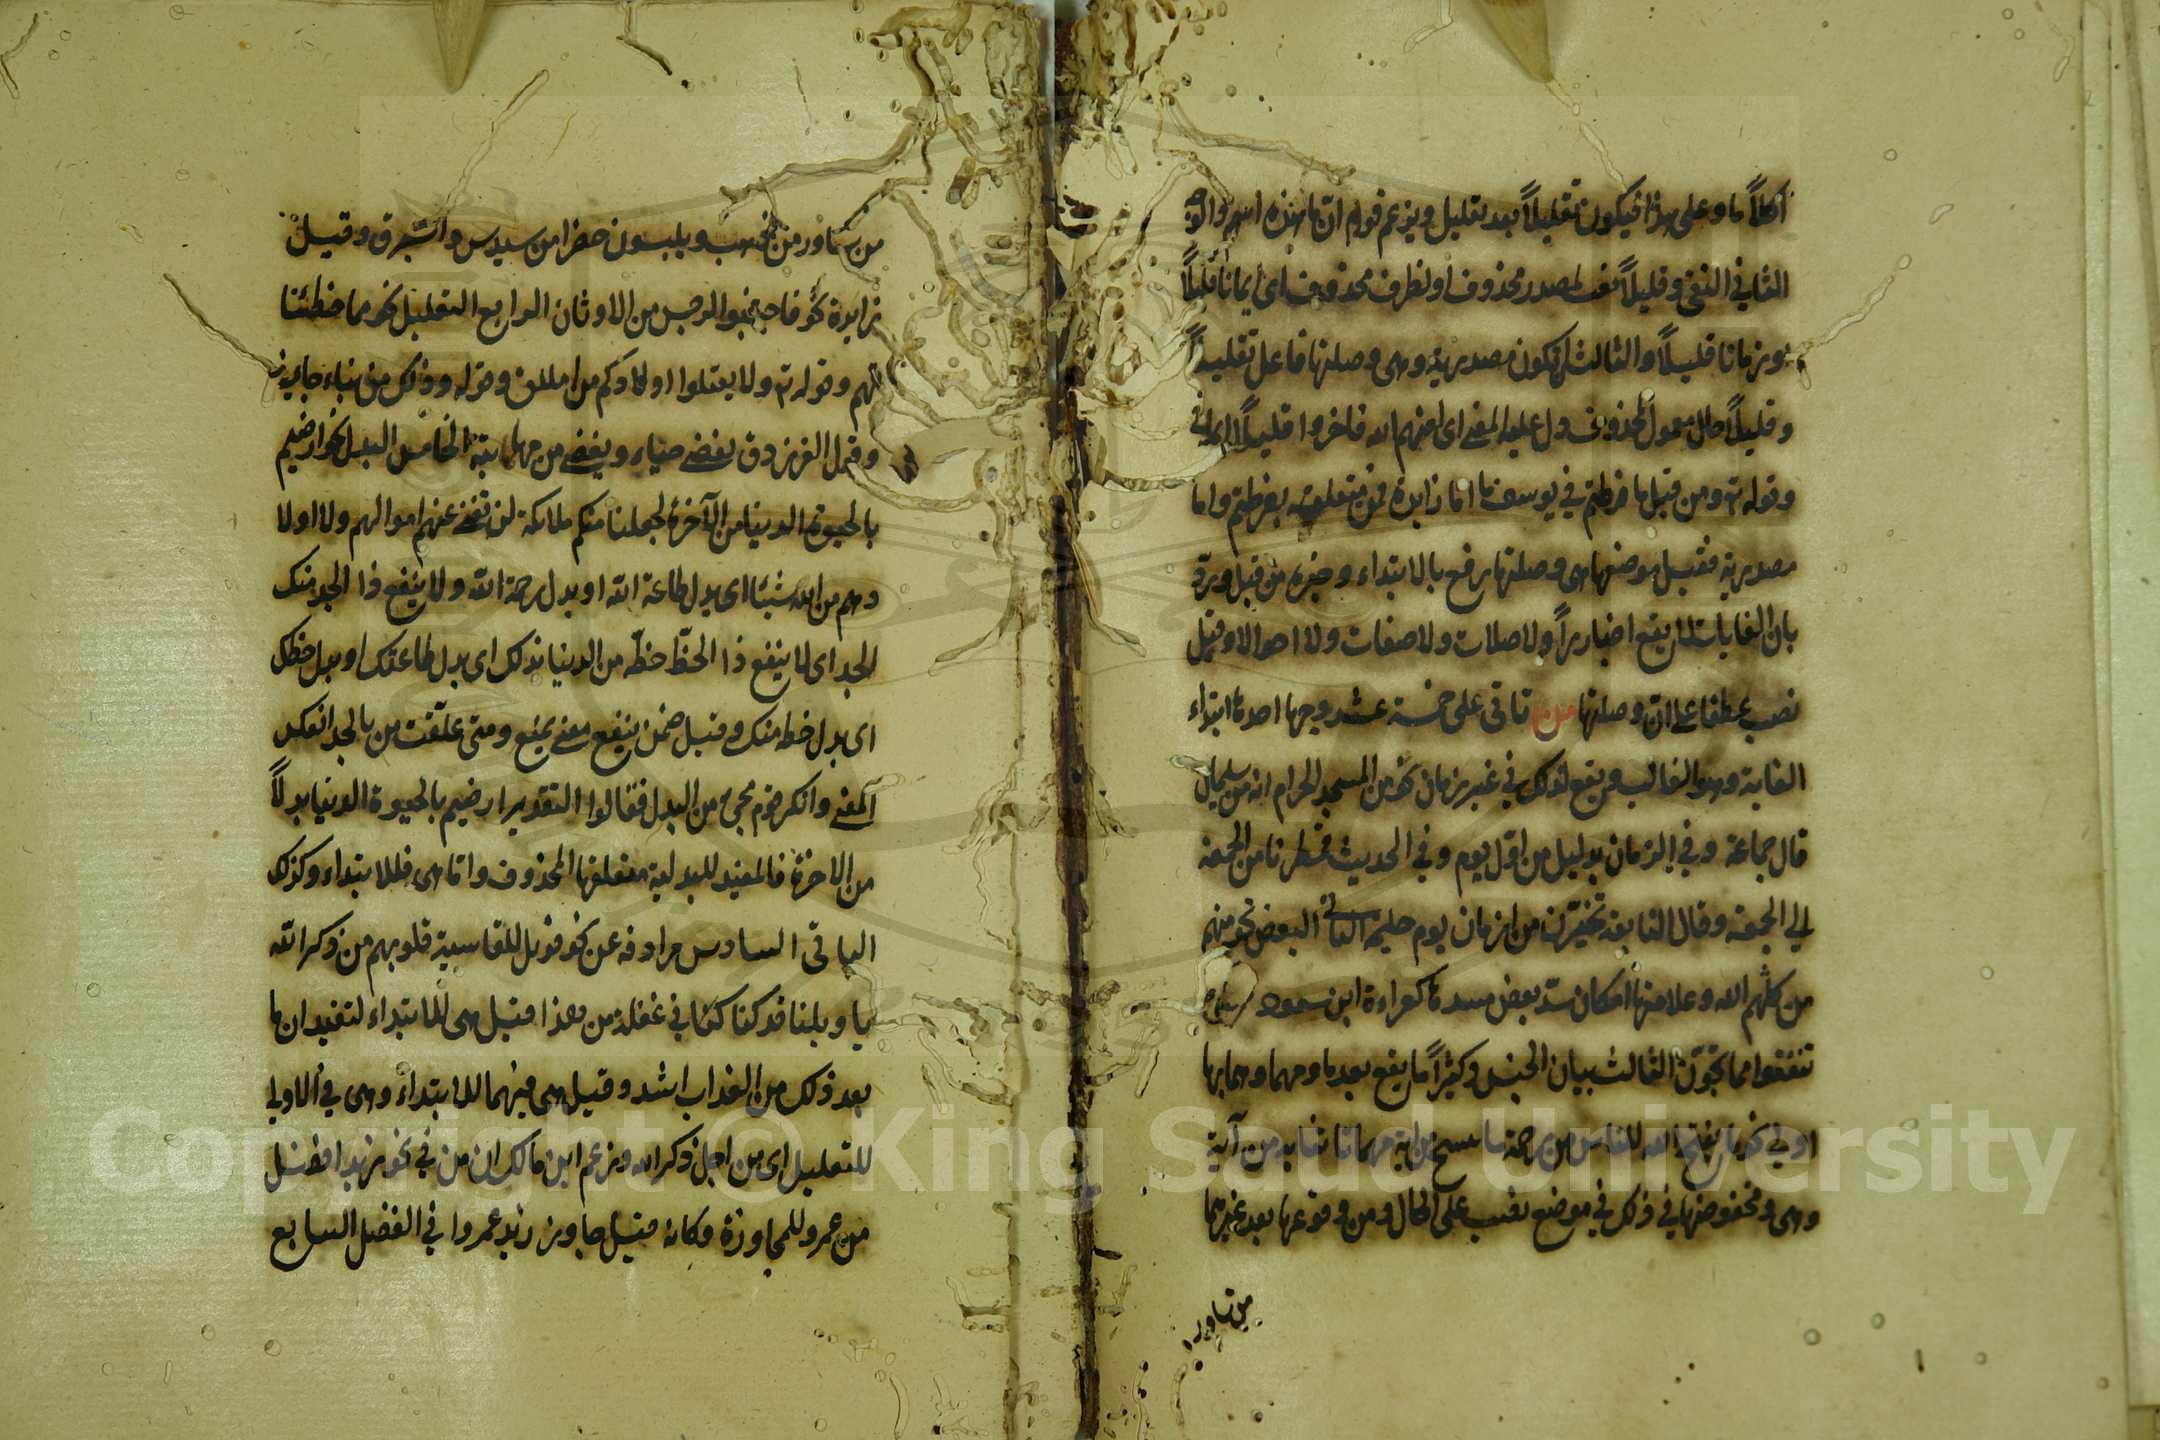 أكلاً ما وعلى هذا فيكون تقليلاً بعد تقليل ويزعم قوم ان ما هذه اسم والوجه
الثاني النفي وقليلاً نعت لمصدر محذوف او لظرف محذوف اى ايمانا قليلاً
وزمانا قليلاً والثالث ان تكون مصدرية وهى وصلتها فاعل بقليلاً
وقليلاً حال معمول لمحذوف دل عليه المعنى اى لعنهم الله فاخروا قليلاً ايمانهم
وقوله ته ومن قبل ما فرطتم في يوسف ما اما زايدة فمن متعلقة بفرطتم واما
مصدرية فقيل موضعها هى وصلتها رفع بالابتداء وخبره من قبل وردّ
بان الغايات لا يقع اخباراً ولا صلات ولا صفات ولا احوالا وقيل
نصب عطفا على ان وصلتها من تاتى على خمسة عشر وجها احدها ابتداء
الغاية وهو الغالب ويقع لذلك في غير زمان نحو من المسجد الحرام انه من سليمان
قال جماعة وفي الزمان بدليل من اوّل يوم وفي الحديث فمطرنا من الجمعة
الى الجمعة وقال النابغة تخيرن من ازمان يوم حليمة الثانى البعض نحو منهم
من كلّهم الله وعلامتها امكان سدّ بعض مسدها كقراءة ابن مسعود
تنفقوا مما تحبّون الثالث بيان الجنس وكثيراً ما يقع بعد ما ومهما وهما بها
اولى نحو ما يفتح الله للناس من رحمة ما ننسخ من اية مهما تاتنا به من آية
وهى ومخفوضها في ذلك في موضع نصب على الحال ومن وقوعها بعد غيرهما
من تساور
من اساور من ذهب ويلبسون خضرا من سندس واستبرق وقيل
زايدة نحو فاجتنبوا الرجس من الاوثان الرابع التعليل نحو مما خطئتا
تهم وقوله ته ولا يقتلوا اولادكم من املاق وقوله وذلك من نباء جاءني
وقول الفرزدق يغضى حياء ويغضى من مهابته الخامس البدل نحو ارضيتم
بالحيوة الدنيا من الآخرة لجعلنا منكم ملائكة لن تغنى عنهم اموالهم ولا اولا
دهم من الله شيئا اى بدل طاعة الله او بدل رحمة الله ولا ينفع ذا الجد منك
الجد اى لا ينفع ذا الحظّ حظّه من الدنيا بذلك اى بدل طاعتك او بدل حظك
اى بدل حظه منك وقيل ضمن ينفع معنى يمنع ومتى علّقت من بالجد انعكس
المعنى وانكر قوم مجئ من البدل فقالوا التقدير ارضيتم بالحيوة الدنيا بدلاً
من الاخرة فالمفيد للبدلية متعلقها المحذوف واما هى فللابتداء وكذلك
الباقى السادس مرادفه عن نحو فويل للقاسية قلوبهم من ذكر الله
يا ويلنا قد كنا كنا في غفلة من هذا وقيل هى للابتداء لتفيد ان ما
بعد ذلك من العذاب اشد وقيل هى فيهما للابتداء وهى في الاولى
للتعليل اى من اجل ذكر الله وزعم ابن مالك ان من في نحو زيد افضل
من عمرو للمجاوزة وكانه قيل جاوز زيد عمروا في الفضل السابع
Copyright © King Saud University